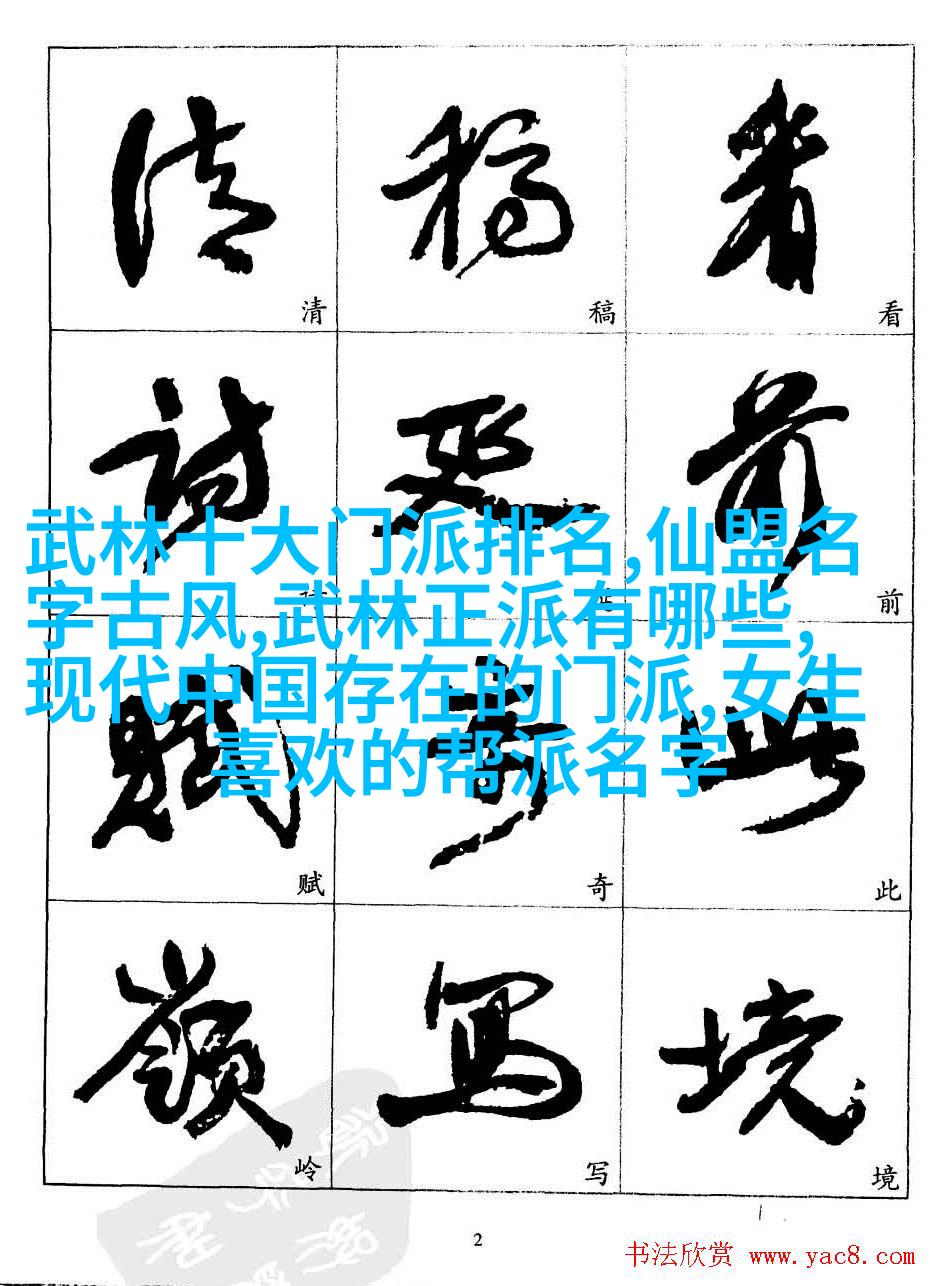 清 稿 看
清 稿 看
詩 前
武林十大门派排名,仙盟名
字古风,武林正派有哪些,
现代中国存在的门派,女生
喜欢的帮派名字
前
賦 奇 此
赋 奇 此
嶺 寫 境
岭 写 境
2
书法欣赏 www.yac8.com